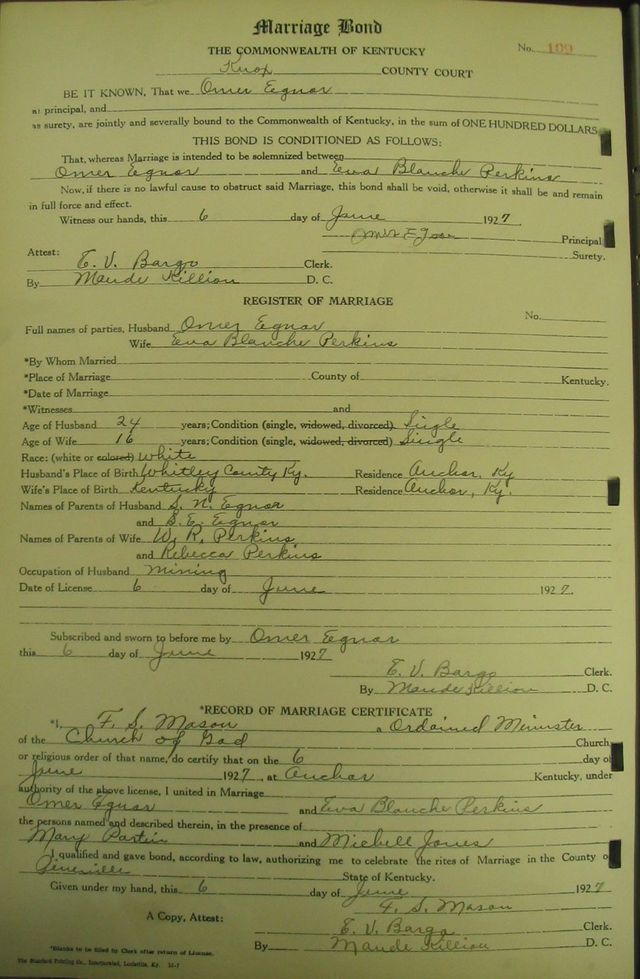 Marriage Bond
THE COMMONWEALTH OF KENTUCKY
No. 109
Knox COUNTY COURT
BE IT KNOWN, That we Omer Egnor
as principal, and
as surety, are jointly and severally bound to the Commonwealth of Kentucky, in the sum of ONE HUNDRED DOLLARS
THIS BOND IS CONDITIONED AS FOLLOWS:
That, whereas Marriage is intended to be solemnized between
Omer Egnor and Eva Blanche Perkins
Now, if there is no lawful cause to obstruct said Marriage, this bond shall be void, otherwise it shall be and remain
in full force and effect.
Witness our hands, this 6 day of June 1927
Omer Principal
Surety.
Attest:
E. V. Bargo Clerk.
By Maude Killion D. C.
REGISTER OF MARRIAGE
No.
Full names of parties, Husband Omer Egnor
Wife Eva Blanche Perkins
*By Whom Married
*Place of Marriage County of Kentucky.
*Date of Marriage
*Witnesses and
Age of Husband 24 years; Condition (single, widowed, divorced) Single
Age of Wife 16 years; Condition (single, widowed, divorced) Single
Race: (white or colored) White
Husband's Place of Birth Whitley County Ky. Residence Anchor, Ky
Wife's Place of Birth Kentucky Residence Anchor, Ky.
Names of Parents of Husband S. N. Egnor
and S. E. Egnor
Names of Parents of Wife W. R. Perkins
and Rebecca Perkins
Occupation of Husband Mining
Date of License 6 day of June 1927.
Subscribed and sworn to before me by Omer Egnor
this 6 day of June 1927
E. V. Bargo Clerk.
By Maude Killion D. C.
*RECORD OF MARRIAGE CERTIFICATE
*I, F. S. Mason a Ordained Minister
of the Church of God Church,
or religious order of that name, do certify that on the 6 day of
June 1927, at Anchor Kentucky, under
authority of the above license, I united in Marriage
Omer Egnor and Eva Blanche Perkins
the persons named and described therein, in the presence of
Mary Partin and Michell Jones
I qualified and gave bond, according to law, authorizing me to celebrate the rites of Marriage in the County o
Pineville State of Kentucky.
Given under my hand, this 6 day of June 1927
F. S. Mason
A Copy, Attest: E. V. Bargo Clerk.
By Maude Killion D. C.
*Blanks to be filled by Clerk after return of License.
The Standard Printing Co., Incorporated, Louisville, Ky.